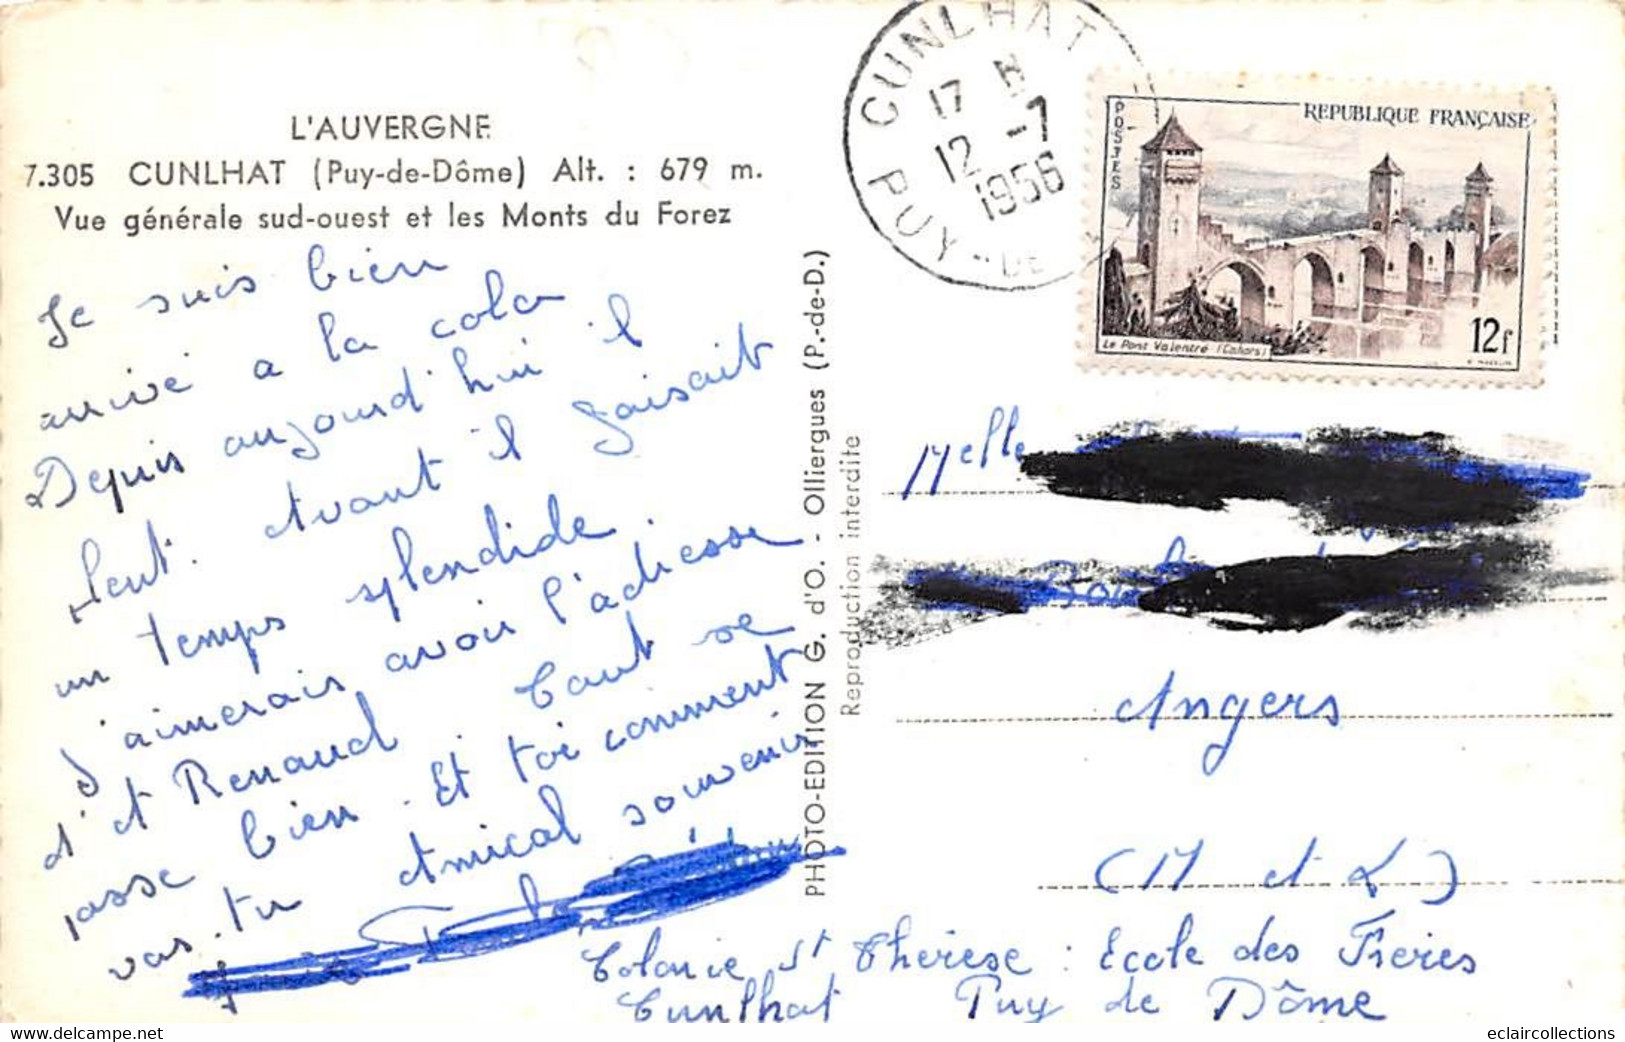 L'AUVERGNE
7.305 CUNLHAT (Puy-de-Dôme) Alt. : 679 m.
Vue générale sud-ouest et les Monts du Forez
Je suis bien
arrivé a la colo
Depuis aujourd'hui il
pleut. Avant il faisait
un temps splendide
J'aimerais avoir l'adresse
d'A Renaud. Tout se
passe bien. Et toi comment
vas-tu Amical souvenir
PHOTO-EDITION G. d'O. - Olliergues (P.-de-D.)
Reproduction interdite
CUNLHAT
17 H
12 -7
1956
PUY-DE
POSTES
REPUBLIQUE FRANÇAISE
Le Pont Valentré (Cahors)
12f
Melle
Angers
(M et L)
Colonie St Thérèse : Ecole des Frères
Cunlhat Puy de Dôme
eclaircollections
delcampe.net